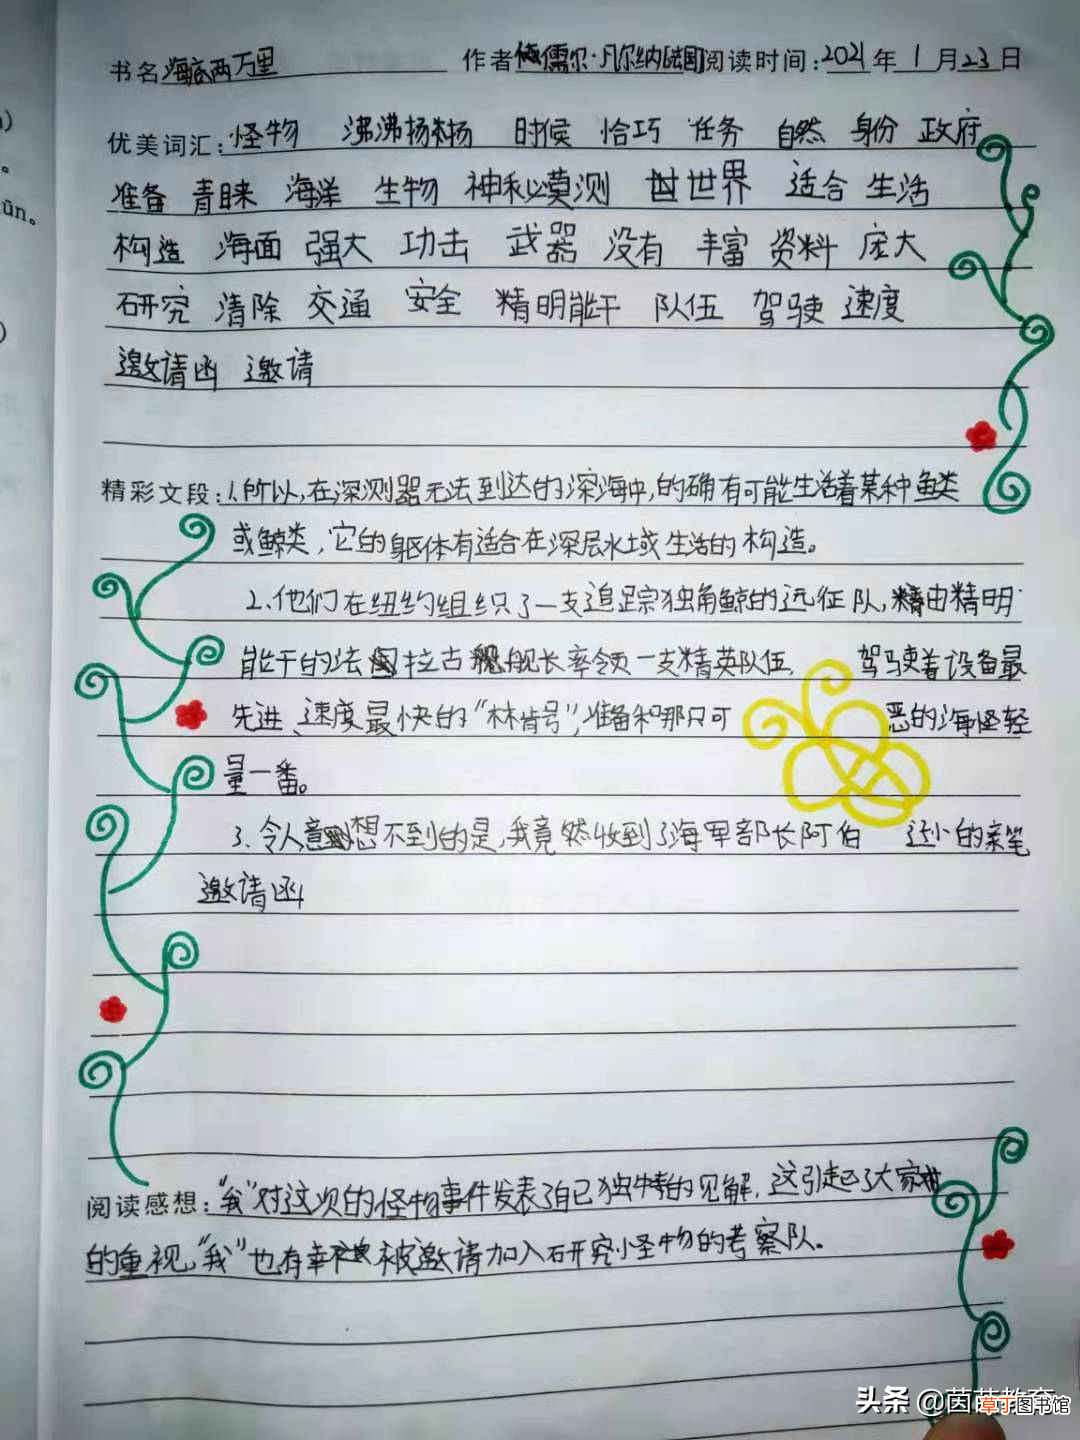 书名海底两万里 作者儒尔·凡尔纳[法国]阅读时间:2021年1月23日
优美词汇:怪物 沸沸扬扬 时候 恰巧 任务 自然 身份 政府
准备 青睐 海洋 生物 神秘莫测 世界 适合 生活
构造 海面 强大 功击 武器 没有 丰富 资料 庞大
研究 清除 交通 安全 精明能干 队伍 驾驶 速度
邀请函 邀请
精彩文段:1.所以,在深测器无法到达的深海中,的确有可能生活着某种鱼类
或鲸类,它的躯体有适合在深层水域生活的构造。
2.他们在纽约组织了一支追踪独角鲸的远征队,由精明
能干的法拉古舰长率领一支精英队伍, 驾驶着设备最
先进、速度最快的"林肯号",准备和那只可 恶的海怪轻
量一番。
3.令人意想不到的是,我竟然收到了海军部长阿伯 逊的亲笔
邀请函
阅读感想:"我"对这次的怪物事件发表了自己独特的见解,这引起了大家
的重视,"我"也有幸被邀请加入研究怪物的考察队。
头条 @茵茵教育
草丁图书馆
ūn。